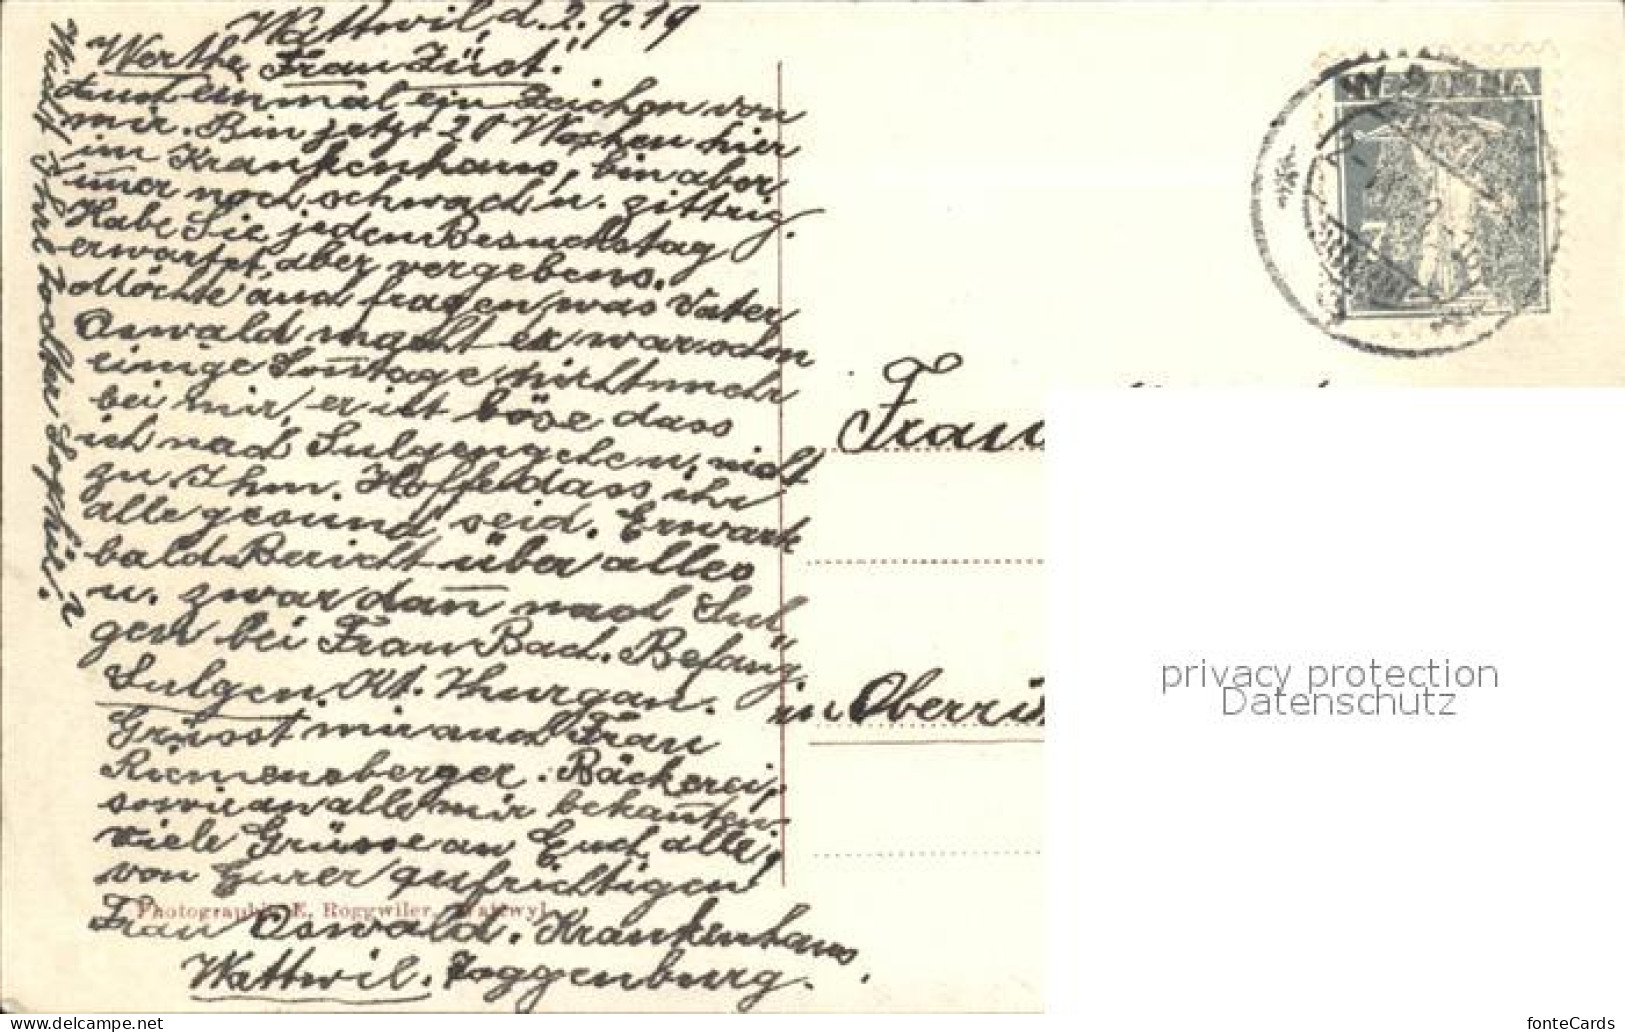 Wattwil, d. 2. 9. 19
Werthe Frau Züst!
Auch einmal ein Zeichen von
mir. Bin jetzt 20 Wochen hier
im Krankenhaus, bin aber
im̄er noch schwach u. zittrig.
Habe Sie jeden Besuchstag
erwartet, aber vergebens.
Möchte auch fragen was Vater
Oswald macht er war schon
einige Son̄tage nicht mehr
bei mir, er ist böse dass
ich nach Sulgen gehen, nicht
zu Ihm. Hoffe dass ihr
alle gesund seid. Erwarte
bald Bericht über alles
u. zwar dan̄ nach Sul
gen bei Frau Bach.
Sulgen. Kt. Thurgau.
Grüsst mir auch Frau
Riemensberger. Bäckerei,
sowie an alle mir bekan̄ten.
Viele Grüsse an Euch alle,
von Eurer aufrichtigen
Frau Oswald. Krankenhaus
Wattwil. Toggenburg.
Ihre Tochter Sophie?
Photographie E. Roggwiler, Wattwyl
HELVETIA
7
Frau
in
privacy protection
Datenschutz
fonteCards